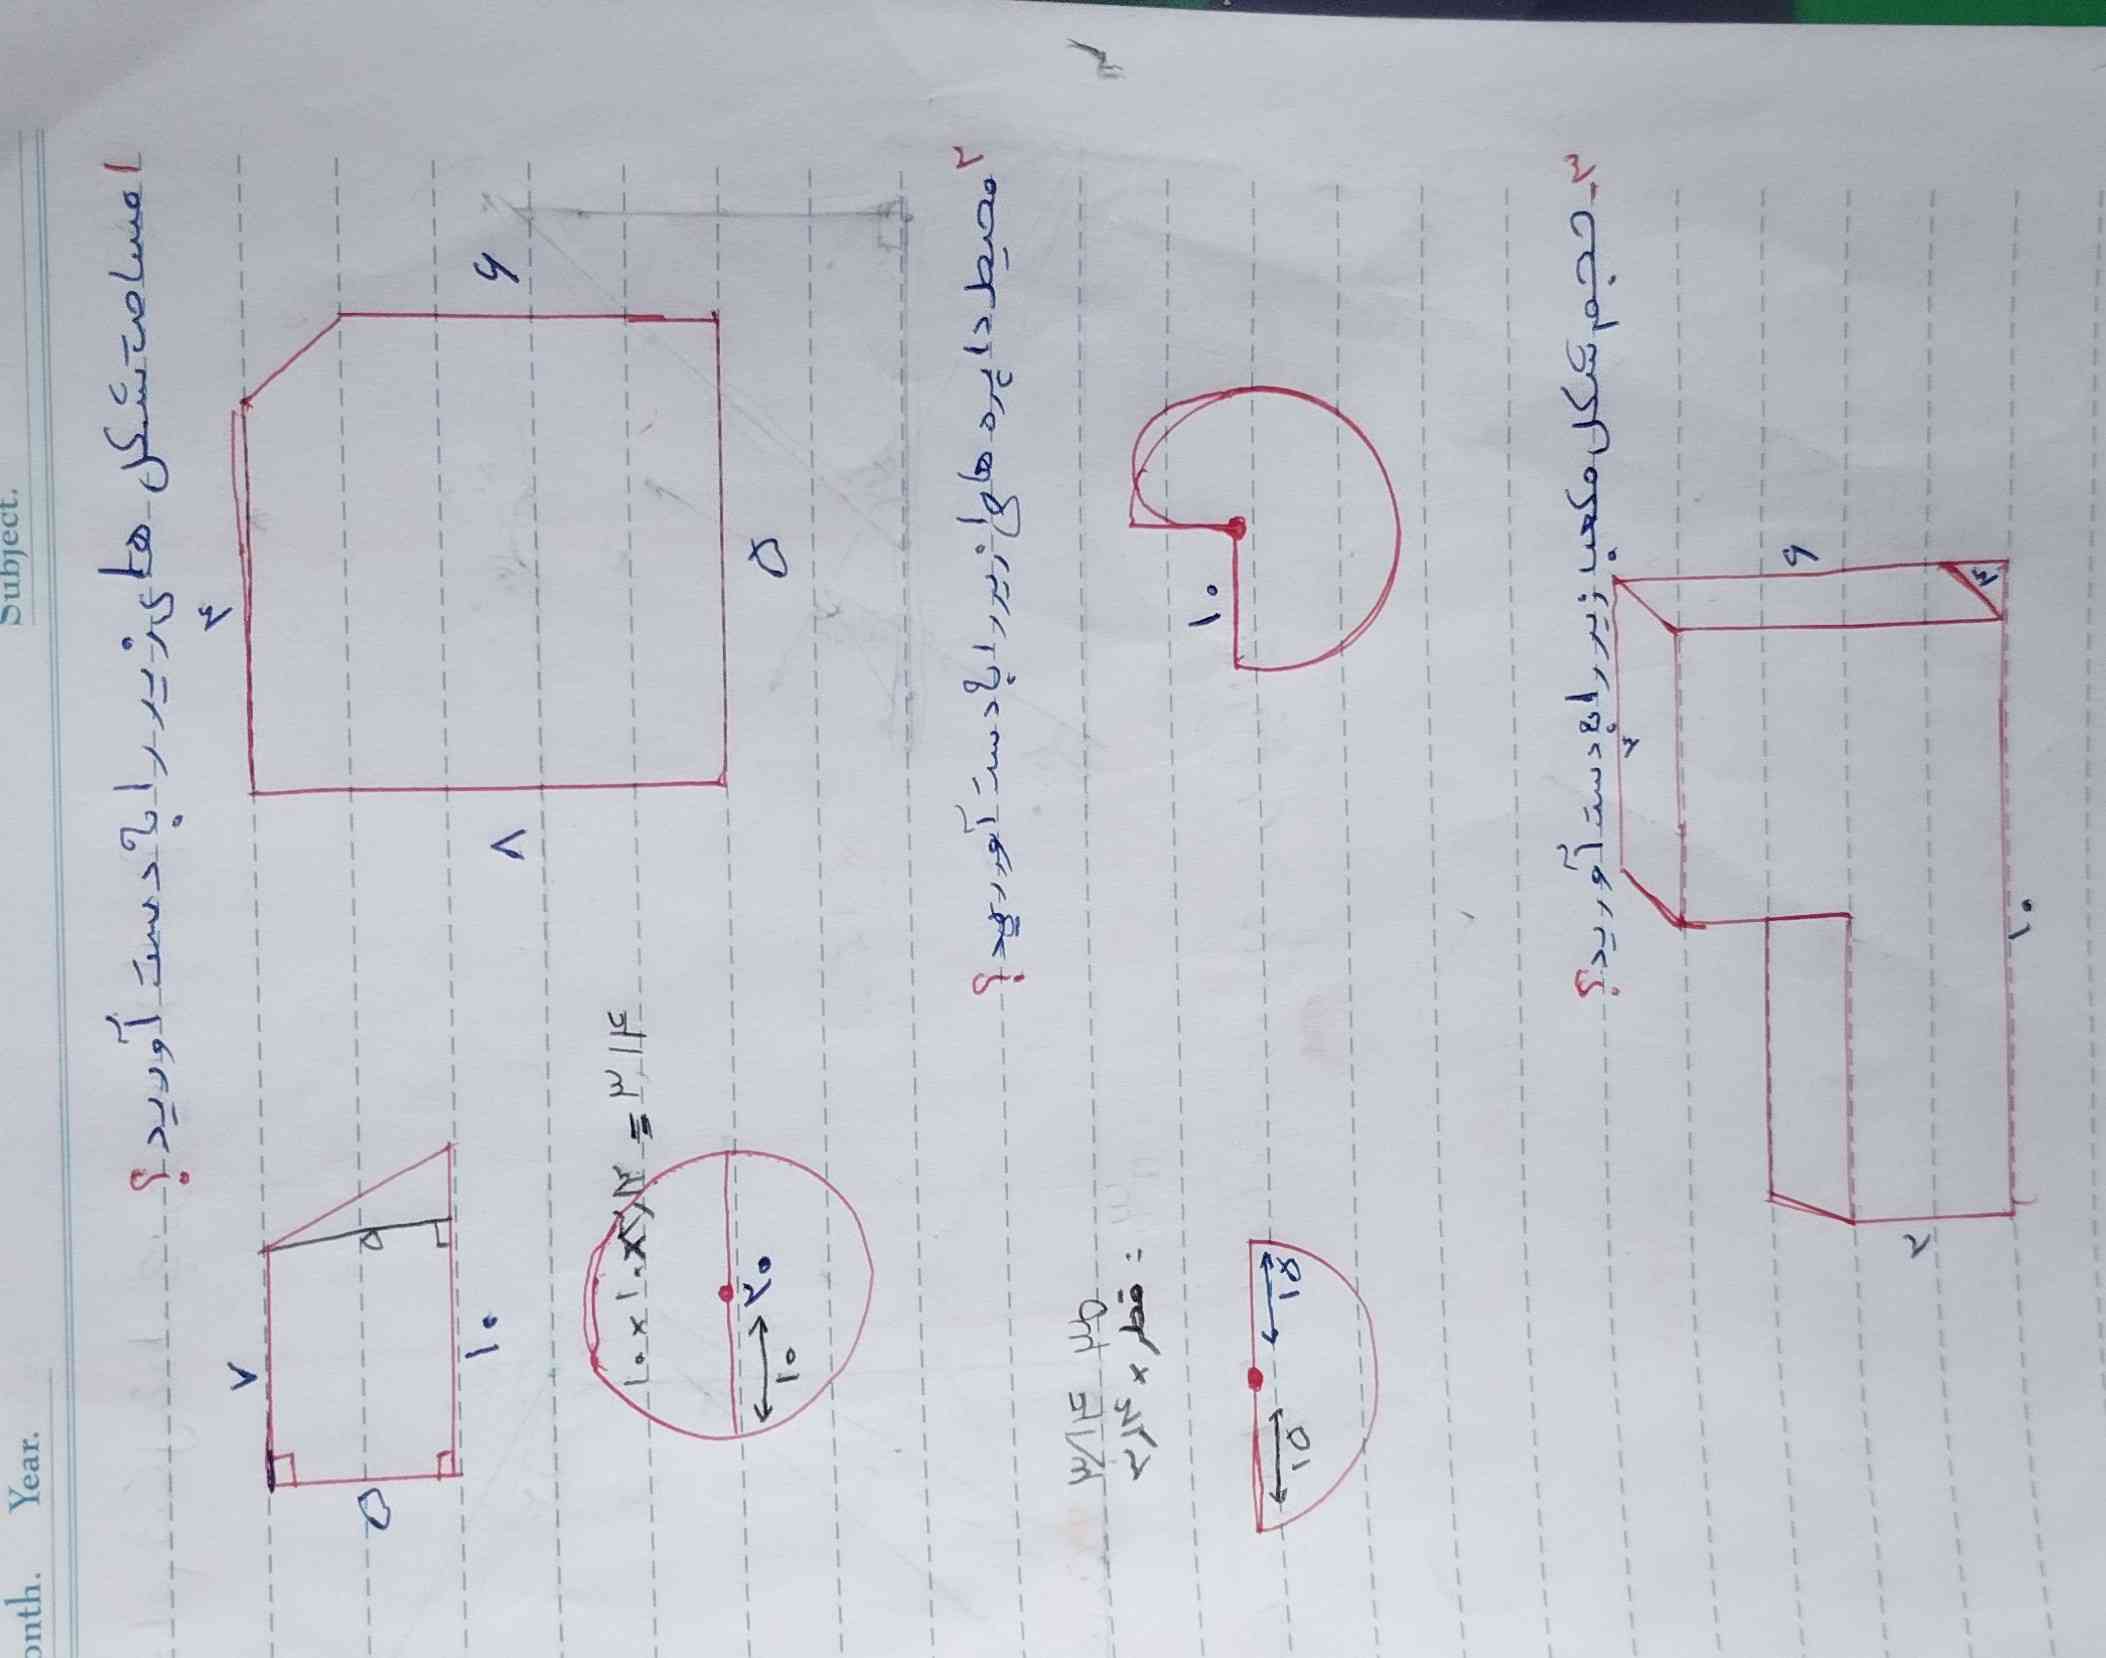 Subject.
onth. Year.
۱ مساحت شکل های زیر را به دست آورید؟
۷
۵
۵
۱۰
۴
۶
۸
۵
۱۰×۱۰×۳/۱۴ = ۳۱۴
۲۰
۱۰
۲ محیط دایره های زیر را به دست آورید؟
۳/۱۴
قطر × ۳/۱۴ :
۱۵
۱۵
۱۰
۳- حجم شکل مکعب زیر را به دست آورید؟
۴
۶
۴
۲
۱۰